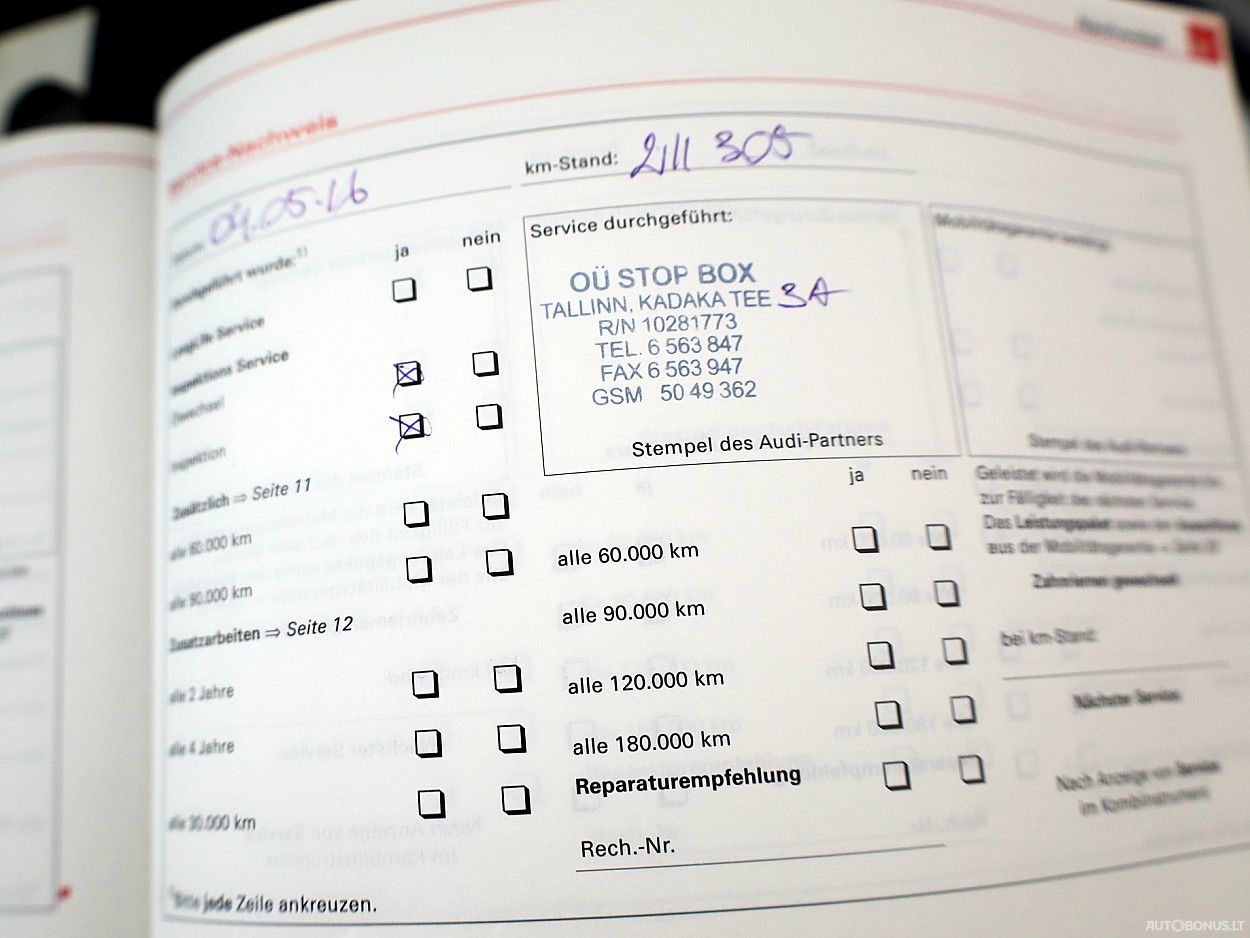 Service-Nachweis
04.05.16
km-Stand: 211 309
durchgeführt wurde:¹⁾
ja nein
Service durchgeführt:
OÜ STOP BOX
TALLINN, KADAKA TEE 3A
R/N 10281773
TEL. 6 563 847
FAX 6 563 947
GSM 50 49 362
Stempel des Audi-Partners
Longlife Service
Inspektions Service
Ölwechsel
Inspektion
Zusätzlich ⇒ Seite 11
alle 60.000 km
alle 90.000 km
Zusatzarbeiten ⇒ Seite 12
alle 2 Jahre
alle 4 Jahre
alle 30.000 km
ja nein
alle 60.000 km
alle 90.000 km
alle 120.000 km
alle 180.000 km
Reparaturempfehlung
Rech.-Nr.
Stempel des Audi-Partners
Geleistet wird die
zur Fälligkeit des nächsten Service.
Das Leistungspaket
aus der Mobilitätsgarantie
Zahnriemen gewechselt
bei km-Stand:
Nächster Service
Nach Anzeige von Service
im Kombiinstrument
Bitte jede Zeile ankreuzen.
AUTOBONUS.LT